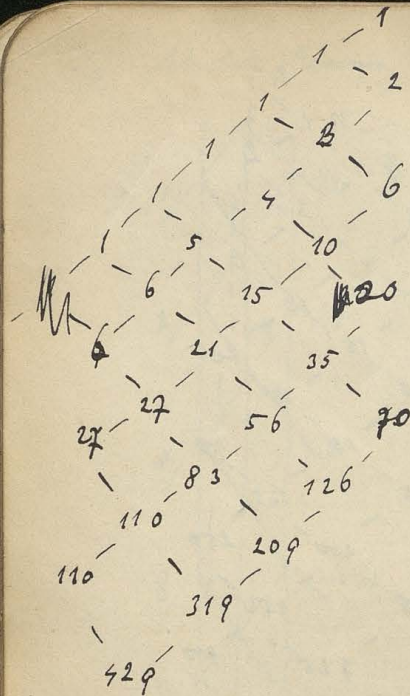 1
1
2
1
3
1
6
1
4
1
5
10
6
15
20
6
21
35
27
27
56
70
83
126
110
209
110
319
429